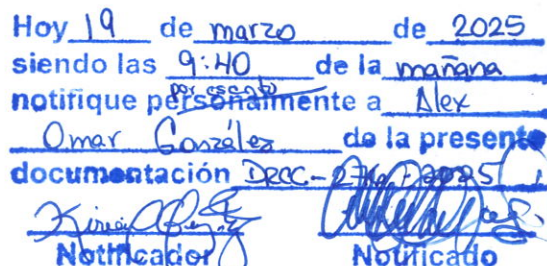 Hoy 19 de marzo de 2025
siendo las 9:40 de la mañana
por escrito
notifique personalmente a Alex
Omar González de la presente
documentación DRCC-
Notificador Notificado